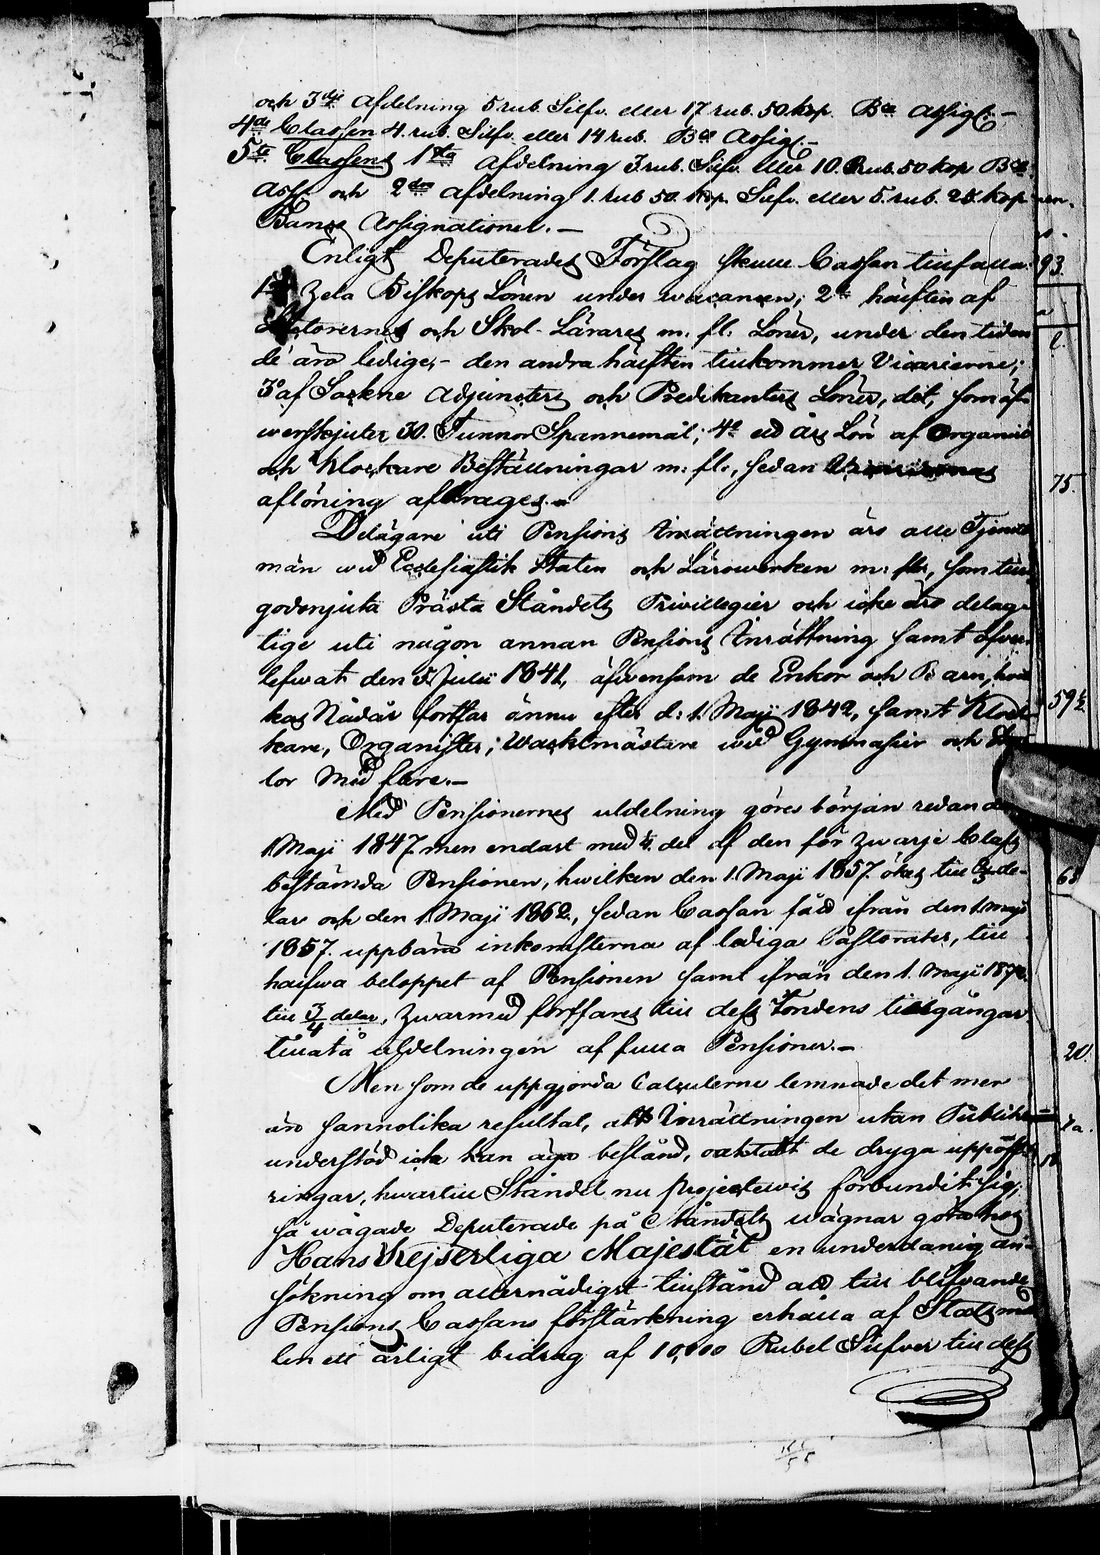 och 3dje Afdelning 5 rub. Silfv. eller 17 rub. 50 kop. Bco Assigt.–
4de Classen 4. rub. Silfv. eller 14 rub. Bco Assigt.–
5te Classens 1sta Afdelning 3 rub. Silfv. eller 10. Rub. 50 kop Bco
Assg. och 2dra Afdelning 1. rub 50. kop. Silfv. eller 5. rub. 25. kop
Banco Assignationer.–
Enligt Deputerades Förslag skulle Cassan tillfalla
1o Hela Biskops Lönen under vacancen; 2o hälften af
Lectorernes och Skol-Lärares m. fl. Löner, under den tiden
de äro ledige,– den andra hälften tillkommer Vicarierne;
3o af Sockne Adjuncters och Predikanters Löner, det, som öf-
werskjuter 30. Tunnor Spannemål; 4o ett års Lön af Organist
och Klockare Beställningar m: fl., sedan
aflöning afdrages.–
Delägare uti Pensions Inrättningen äro alle Tjenste
män wid Ecclesiastik Staten och Lärowerken m: fl., som till
godonjuta Prästa Ståndets Privilegier och icke äro delag-
tige uti någon annan Pensions Inrättning samt öfver-
lefwat den Julii 1841, äfvensom de Enkor och Barn, hvil
kas Nådår fortfar ännu efter d: 1. Maji 1842, samt Klock
kare, Organister; Wacktmästare wid Gymnasier och Sko
lor med flere.–
Med Pensionernes utdelning göres början redan den
1. Maji 1847. men endast med 1/4. del af den för hwarje Class
bestämda Pensionen, hwilken den 1. Maji 1857. ökes till de-
lar och den 1. Maji 1862., sedan Cassan fått ifrån den 1. Maji
1857. uppbära inkomsterna af lediga Pastorater, till
halfwa beloppet af Pensionen samt ifrån den 1. Maji 187
till 3/4 delar, hwarmed fortfares till dess Fondens tillgångar
tillåta utdelningen af fulla Pensioner.–
Men som de uppgjorda Calculerne lemnade det mer
än sannolika resultat, att Inrättningen utan Publikt
understöd icke kan äga bestånd, oaktadt de dryga uppoff
ringar, hwartill Ståndet nu projectewis förbundit sig;
så wågade Deputerade på Ståndets wägnar göra hos
Hans Kejserliga Majestät en underdånig an-
sökning om allernådigst tillstånd att till blifvande
Pensions Cassans förstärkning erhålla af Stats
len ett årligt bidrag af 10,000 Rubel Silfver till dess
93
75.
59½
68
20